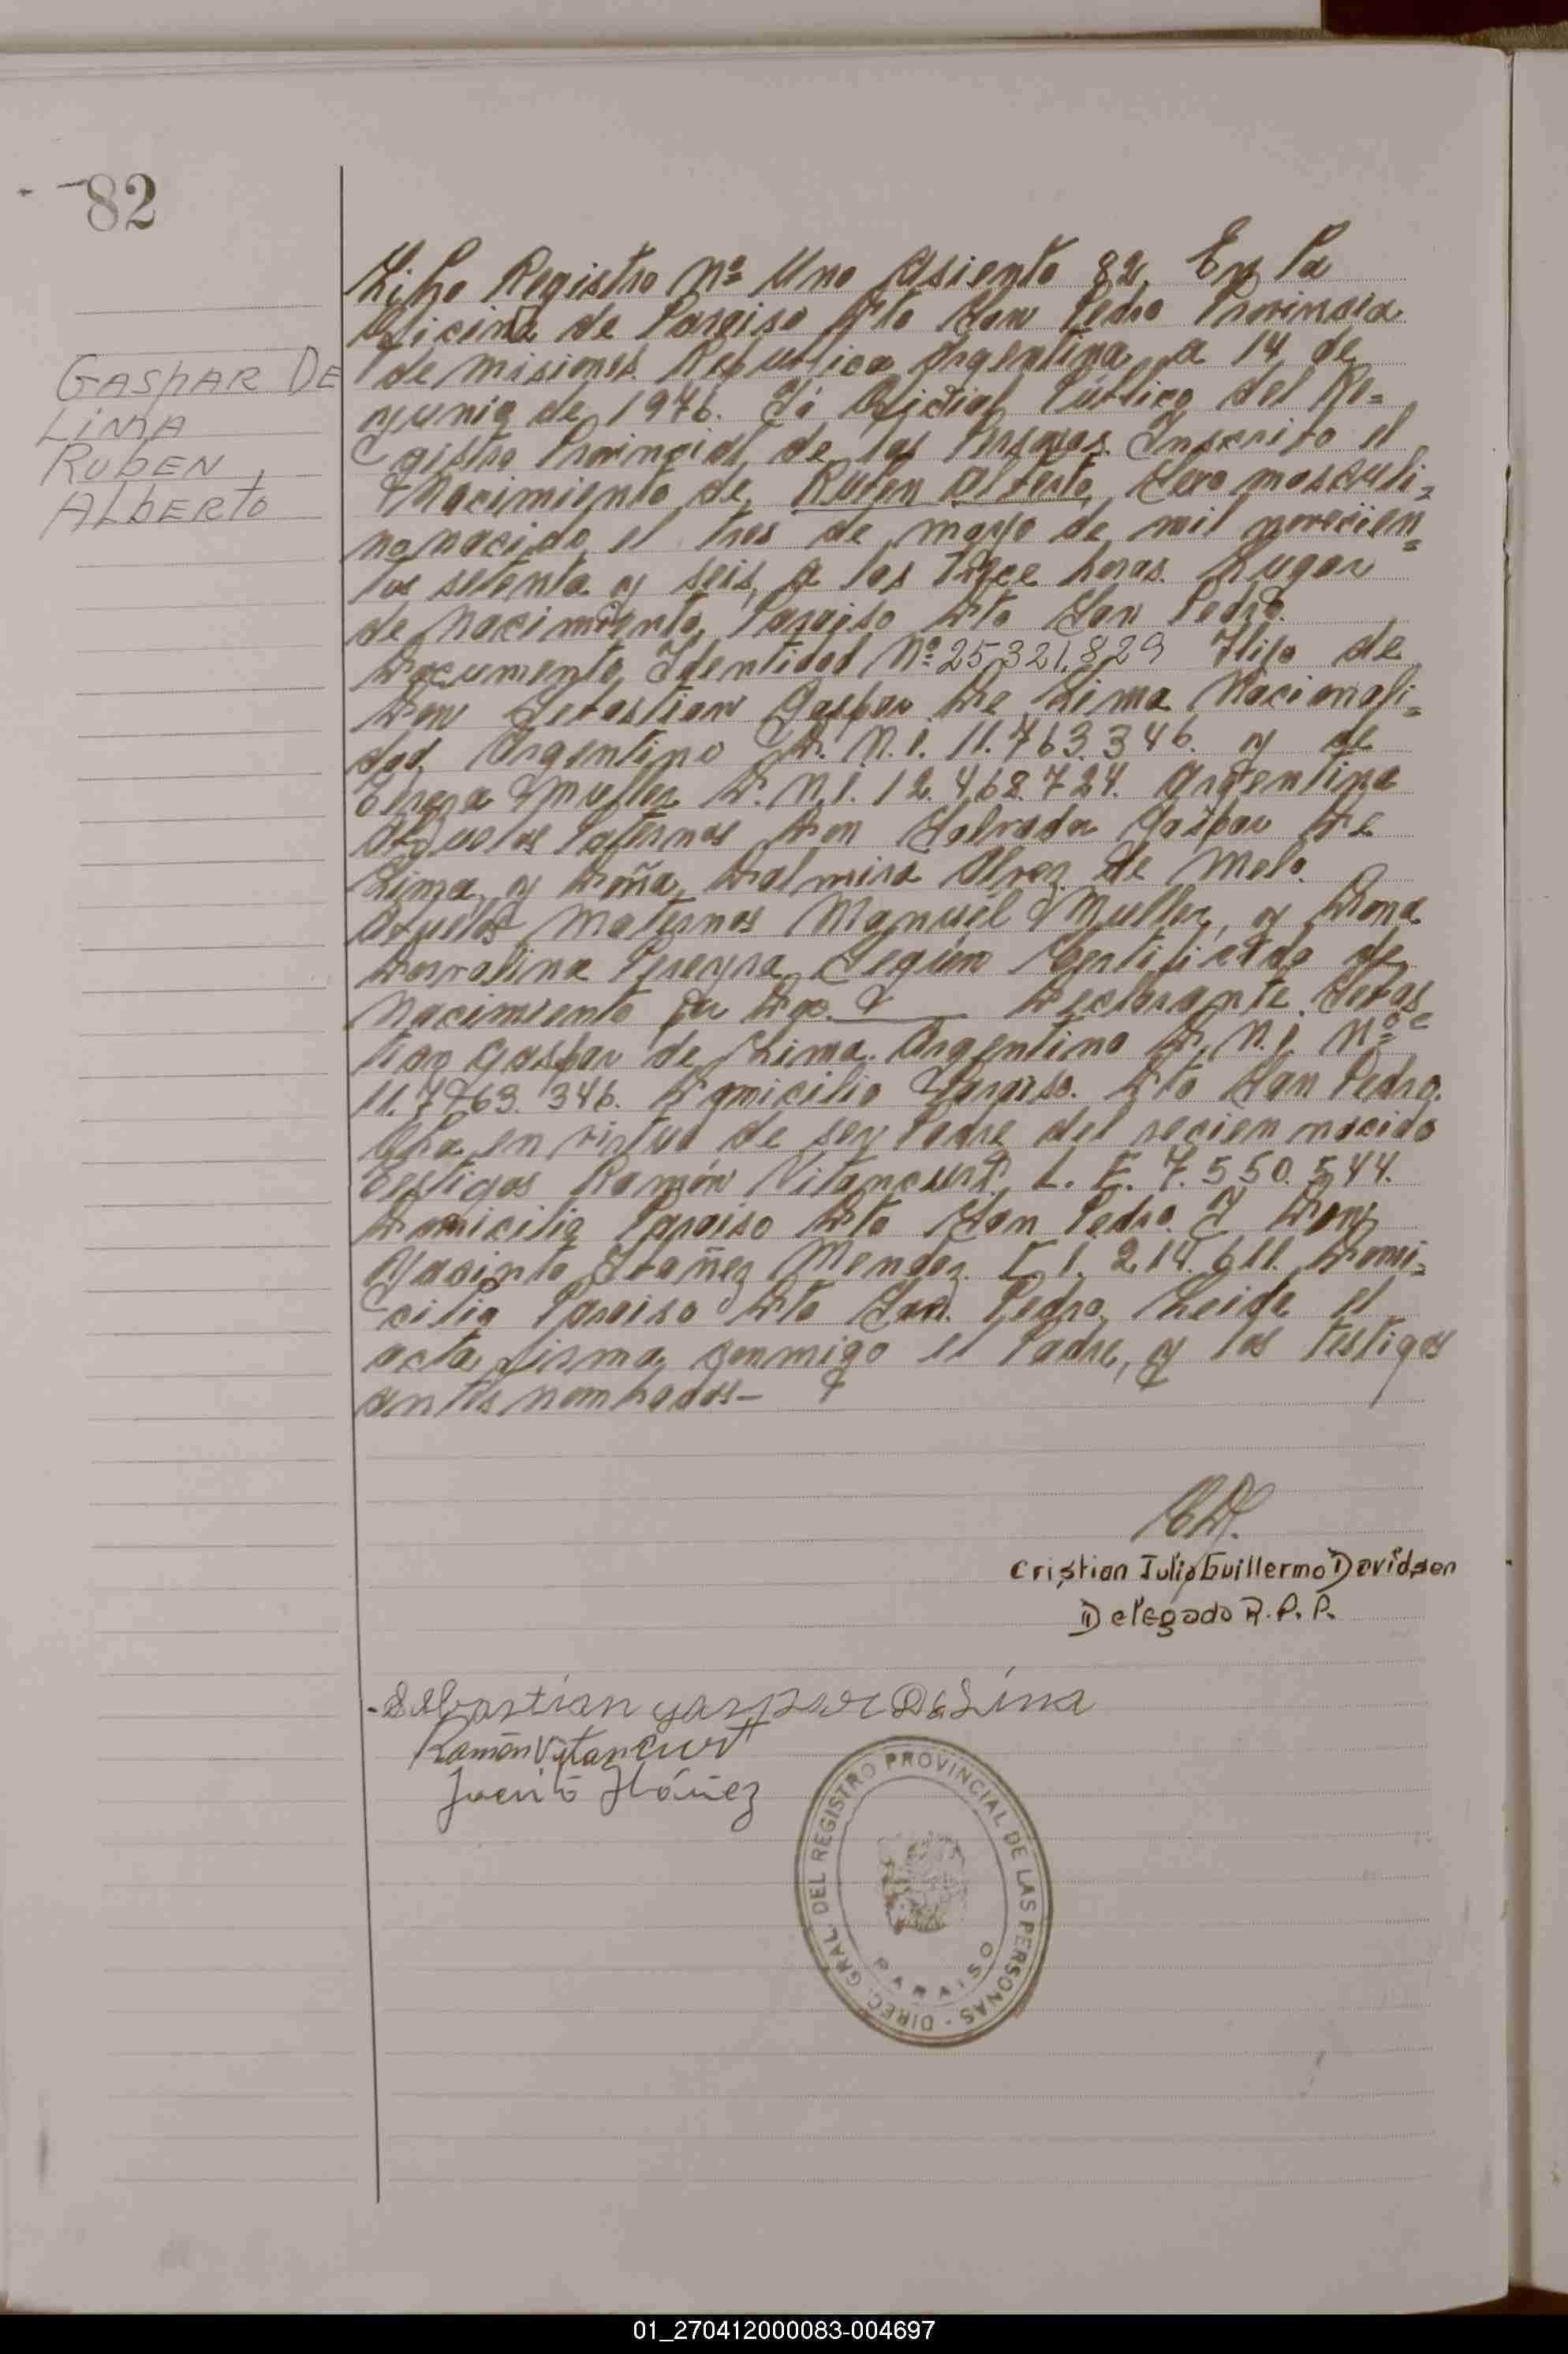 82
GASPAR DE
LIMA
RUBEN
ALBERTO
Libro Registro Nº Uno Asiento 82. En La
Oficina de Paraiso Dto San Pedro Provincia
de Misiones Republica Argentina a 14 de
yunio de 1976. Yó Oficial Público del Re=
gistro Provincial de las Personas. Inscribo el
Nacimiento de, Ruben Alberto, Sexo masculi=
no nacido el tres de mayo de mil novecien=
tos setenta y seis, a las horas. Lugar
de Nacimiento, Paraiso Dto San Pedro.
Documento Identidad Nº 25.321.829 Hijo de
Don Sebastian Gaspar De Lima Nacionali=
dad Argentino D. N. I. 11.763.346. y de
Teresa Muller D. N. I. 12.468.724. Argentina
Abuelos Paternos Don Salvador Gaspar De
Lima, y Doña, Dalmira Alves de Melo.
Abuelos Maternos Manuel Muller, y Dona
Doralina Pereyra Según Certificado de
Nacimiento Declarante. Sebas
tian Gaspar de Lima. Argentino D. N. I. Nº
11.763.346. Domicilio Paraiso. Dto San Pedro.
Obra en virtud de ser Padre del recien nacido
Testigos Ramón Vitancurt, L. E. 7.550.544.
Domicilio Paraiso Dto San Pedro. Y Don
Yasinto Ibañez Mendez. C. I. 214.611. Domi=
cilio Paraiso Dto San. Pedro. Leida el
acta, firma conmigo el Padre, y los testigos
antes nombrados—
Cristian Julio Guillermo Davidsen
Delegado R. P. P.
Sebastian gaspar De Lima
Ramón Vitancurt
Jacinto Ibáñez
DIREC. GRAL. DEL REGISTRO PROVINCIAL DE LAS PERSONAS -
PARAISO
01_270412000083-004697